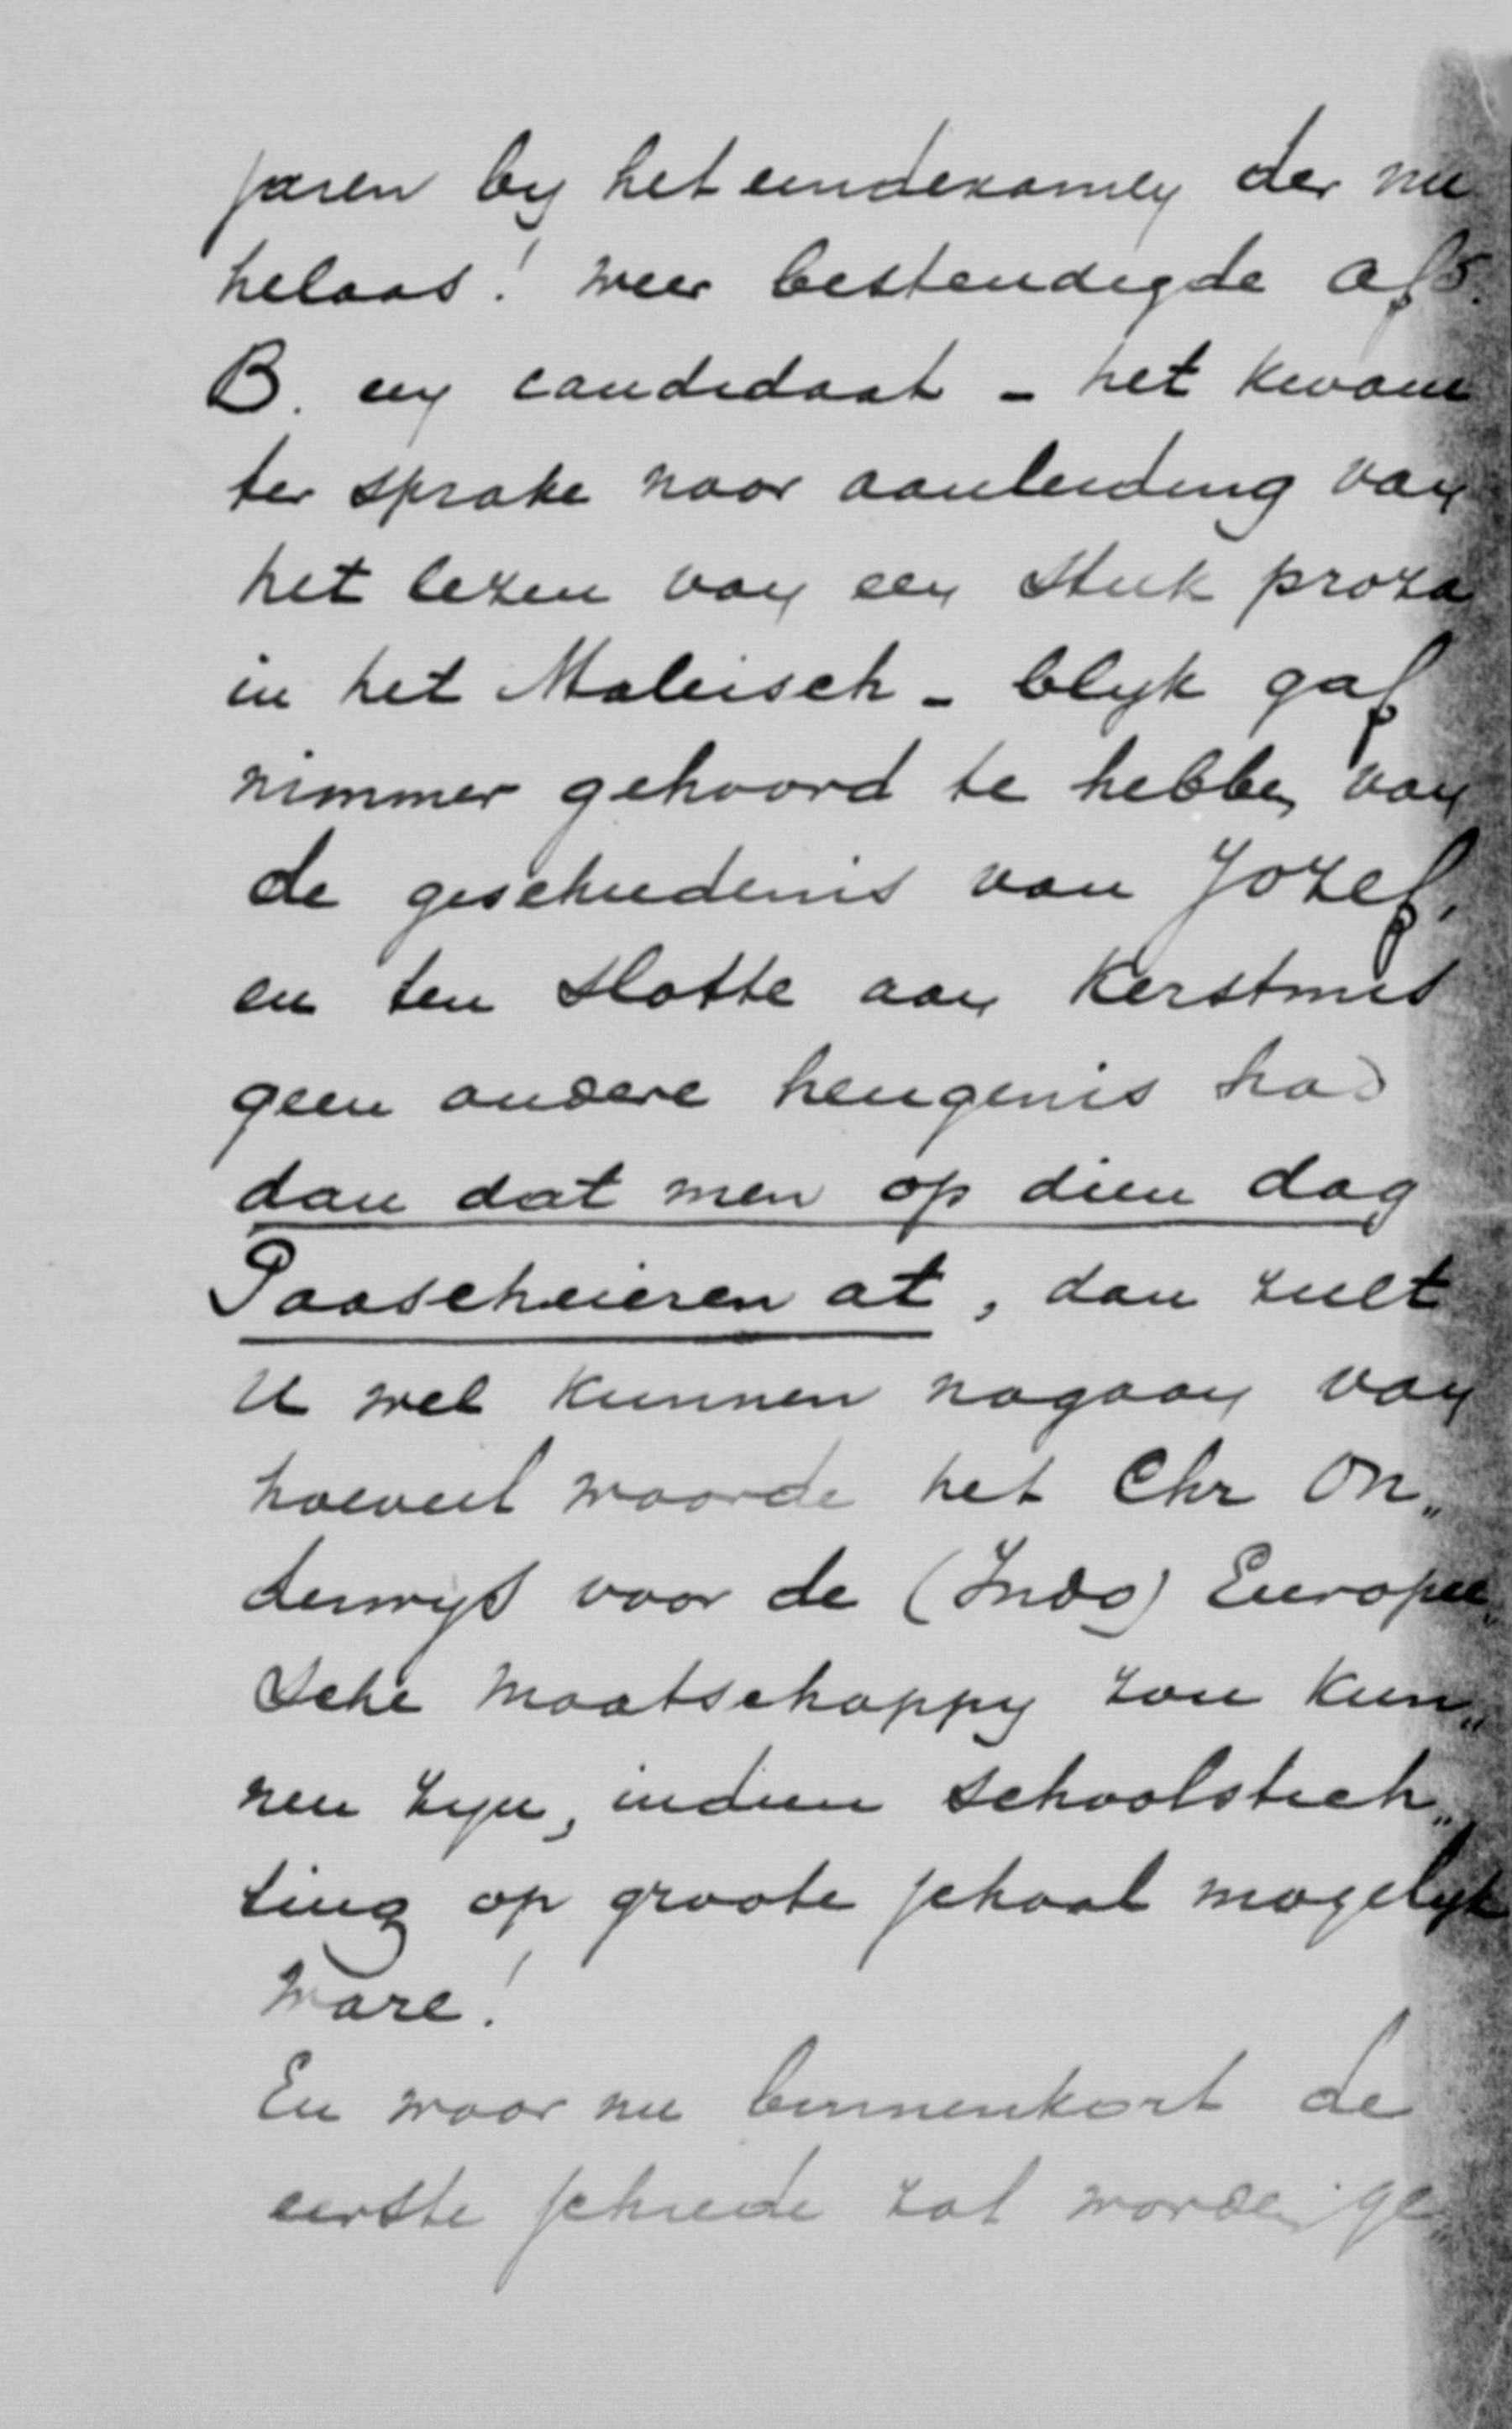 jaren by het eindexamen der nu
helaas! weer bestendigde afd.
B. een candidaat - het kwam
ter sprake naar aanleiding van
het lezen van een stuk proza
in het Maleisch - blyk gaf
nimmer gehoord te hebben van
de geschiedenis van Jozef,
en ten slotte aan Kerstmis
geen andere heugenis had
dan dat men op dien dag
Paascheieren at, dan zult
U wel kunnen nagaan van
hoeveel waarde het Chr On„
derwys voor de (Indo) Europee„
sche maatschappy zou kun„
nen zyn, indien schoolstich„
ting op groote schaal mogelyk
ware!
En waar nu binnenkort de
eerste schrede zal worden ge„